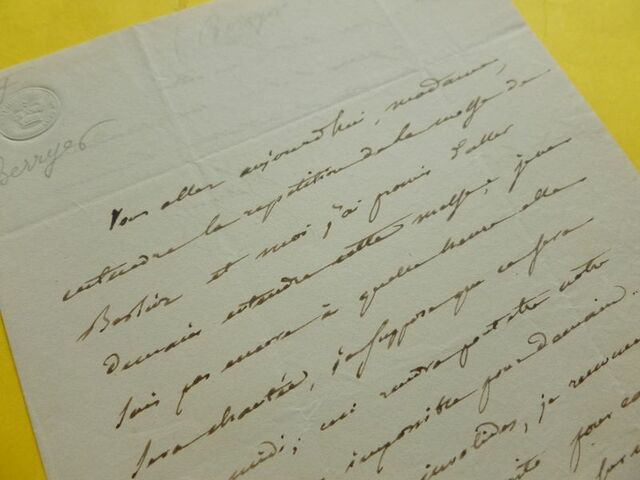 Berryer
Vous allez aujourd'hui, madame,
entendre la repetition de la messe de
Berlioz et moi j'ai promis d'aller
demain entendre cette messe, je ne
sais pas encore à quelle heure elle
sera chantée, je suppose que ce sera
midi; ceci rendra peut etre votre
impossible pour demain..
invalides, je
pour